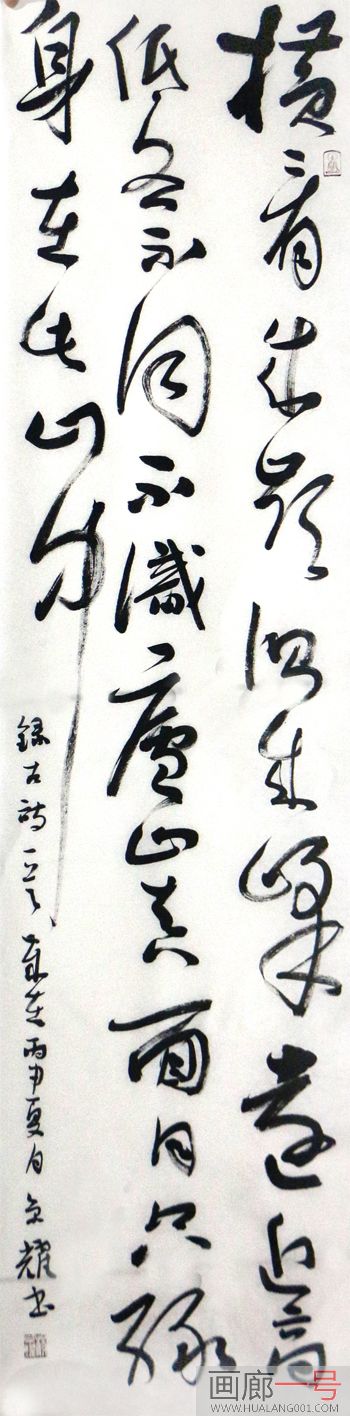 横看成嶺側成峰遠近高
低各不同不識廬山真面目只緣
身在此山中
錄古詩一首歲在丙申夏月耀書
画廊一号
WWW.HUALANG001.COM